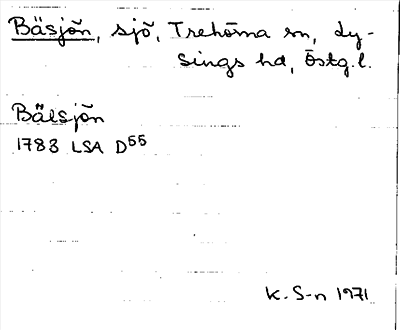 Bäsjön, sjö, Trehörna sn, Ly-
sings hd, Östg.l.
Bälsjön
1783 LSA D55
K. S-n 1971